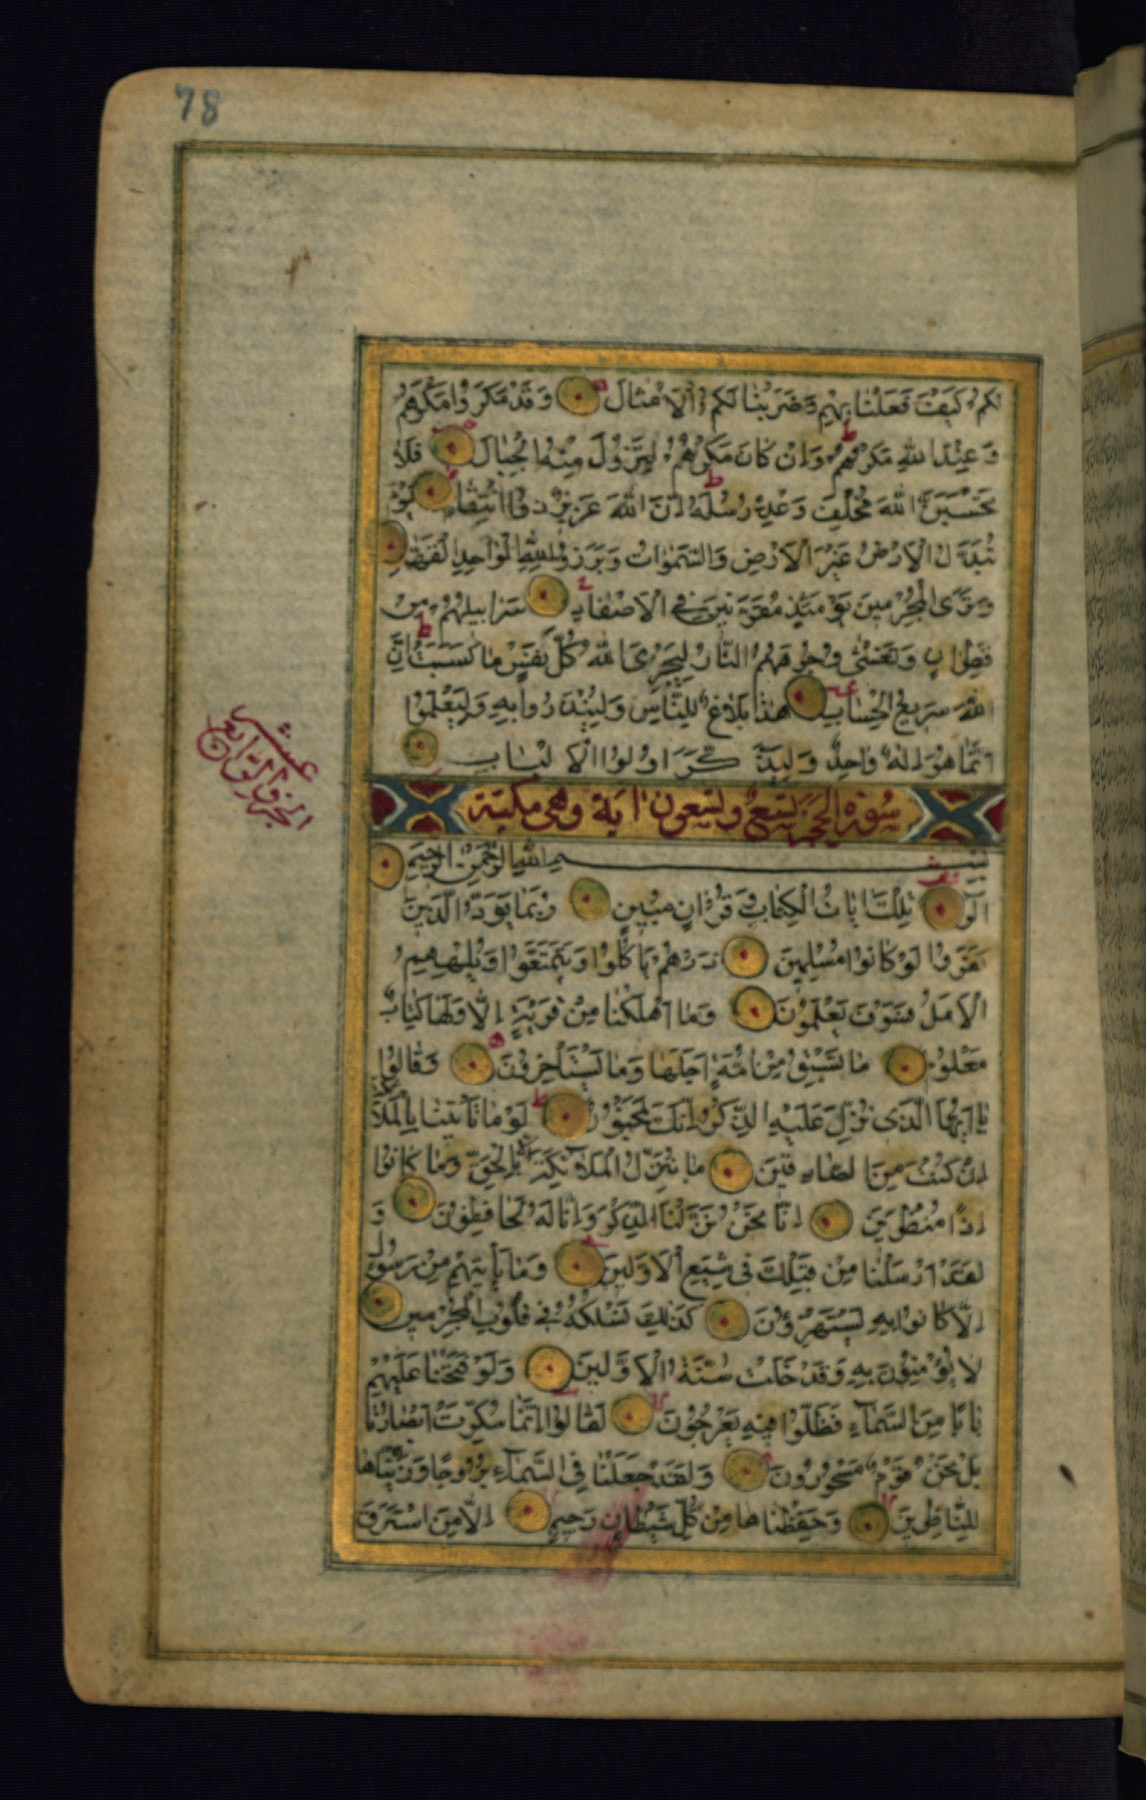 78
لكم كيف فعلنا بهم وضربنا لكم الامثال وقد مكروا مكرهم
وعند الله مكرهم وان كان مكرهم لتزول منه الجبال فلا
تحسبن الله مخلف وعده رسله ان الله عزيز ذو انتقام يوم
تبدل الارض غير الارض والسموات وبرزوا لله الواحد القهار
وترى المجرمين يومئذ مقرنين في الاصفاد سرابيلهم من
قطران وتغشى وجوههم النار ليجزى الله كل نفس ما كسبت ان
الله سريع الحساب هذا بلاغ للناس ولينذروا به وليعلموا
انما هو اله واحد وليذكر اولوا الالباب
سورة الحجر تسع وتسعون اية وهي مكية
بسم الله الرحمن الرحيم
الر تلك ايات الكتاب وقران مبين ربما يود الذين
كفروا لو كانوا مسلمين ذرهم ياكلوا ويتمتعوا ويلههم
الامل فسوف يعلمون وما اهلكنا من قرية الا ولها كتاب
معلوم ما تسبق من امة اجلها وما يستاخرون وقالوا
يا ايها الذي نزل عليه الذكر انك لمجنون لو ما تاتينا بالملائكة
ان كنت من الصادقين ما ننزل الملائكة الا بالحق وما كانوا
اذا منظرين انا نحن نزلنا الذكر وانا له لحافظون و
لقد ارسلنا من قبلك في شيع الاولين وما ياتيهم من رسول
الا كانوا به يستهزؤن كذلك نسلكه في قلوب المجرمين
لا يؤمنون به وقد خلت سنة الاولين ولو فتحنا عليهم
بابا من السماء فظلوا فيه يعرجون لقالوا انما سكرت ابصارنا
بل نحن قوم مسحورون ولقد جعلنا في السماء بروجا وزيناها
للناظرين وحفظناها من كل شيطان رجيم الا من استرق
الجزء الرابع عشر